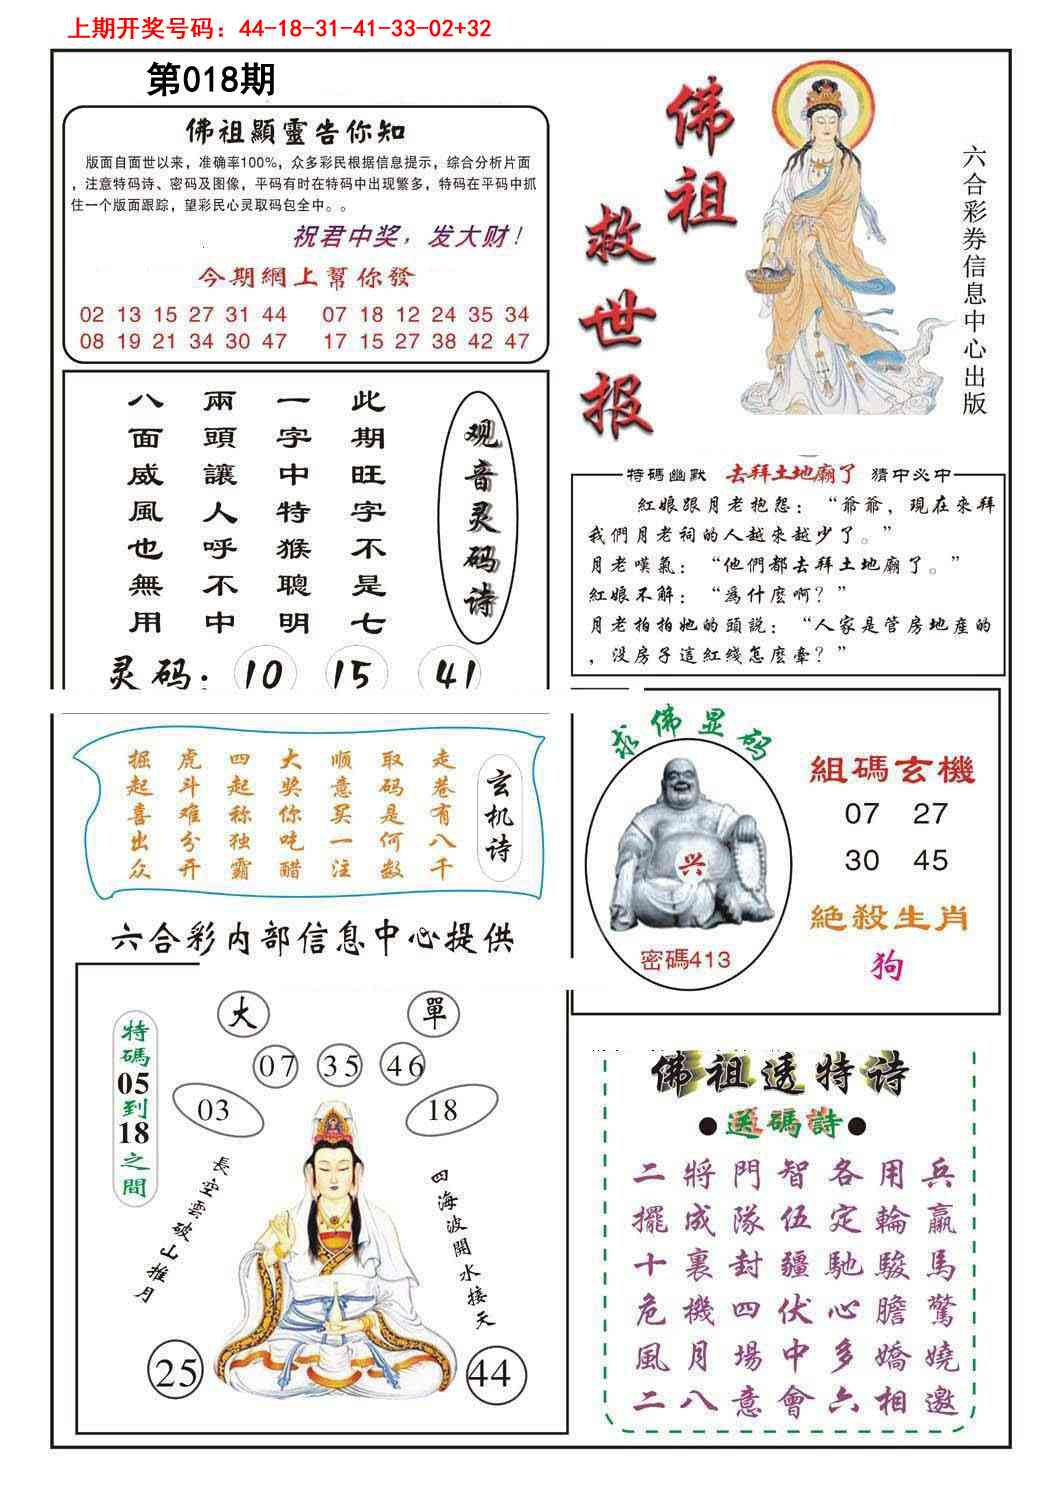 上期开奖号码：44-18-31-41-33-02+32
第018期
佛祖顯靈告你知
版面自面世以来，准确率100%，众多彩民根据信息提示，综合分析片面
，注意特码诗、密码及图像，平码有时在特码中出现繁多，特码在平码中抓
住一个版面跟踪，望彩民心灵取码包全中。。
祝君中奖，发大财！
今期網上幫你發
02 13 15 27 31 44 07 18 12 24 35 34
08 19 21 34 30 47 17 15 27 38 42 47
佛祖
救世报
六合彩券信息中心出版
观音灵码诗
此期旺字不是七
一字中特猴聰明
兩頭讓人呼不中
八面威風也無用
灵码：10 15 41
特碼幽默 去拜土地廟了 猜中必中
紅娘跟月老抱怨：“爺爺，現在來拜
我們月老祠的人越來越少了。”
月老嘆氣：“他們都去拜土地廟了。”
紅娘不解：“爲什麽啊？”
月老拍拍她的頭説：“人家是管房地産的
，没房子這紅綫怎麽牽？”
玄机诗
走巷有八千
取码是何数
顺意买一注
大奖你吃醋
四起称独霸
虎斗难分开
掘起喜出众
六合彩内部信息中心提供
求佛显码
兴
密碼413
組碼玄機
07 27
30 45
絕殺生肖
狗
特碼05到18之間
大 單
07 35 46
03 18
長空雲破山推月
四海波開水接天
25 44
佛祖透特诗
●送碼詩●
二將門智各用兵
擺成隊伍定輪贏
十裏封疆馳駿馬
危機四伏心膽驚
風月場中多嬌嬈
二八意會六相邀